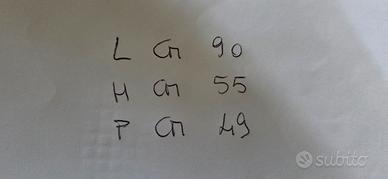 L cm 90
H cm 55
P cm 49
subito